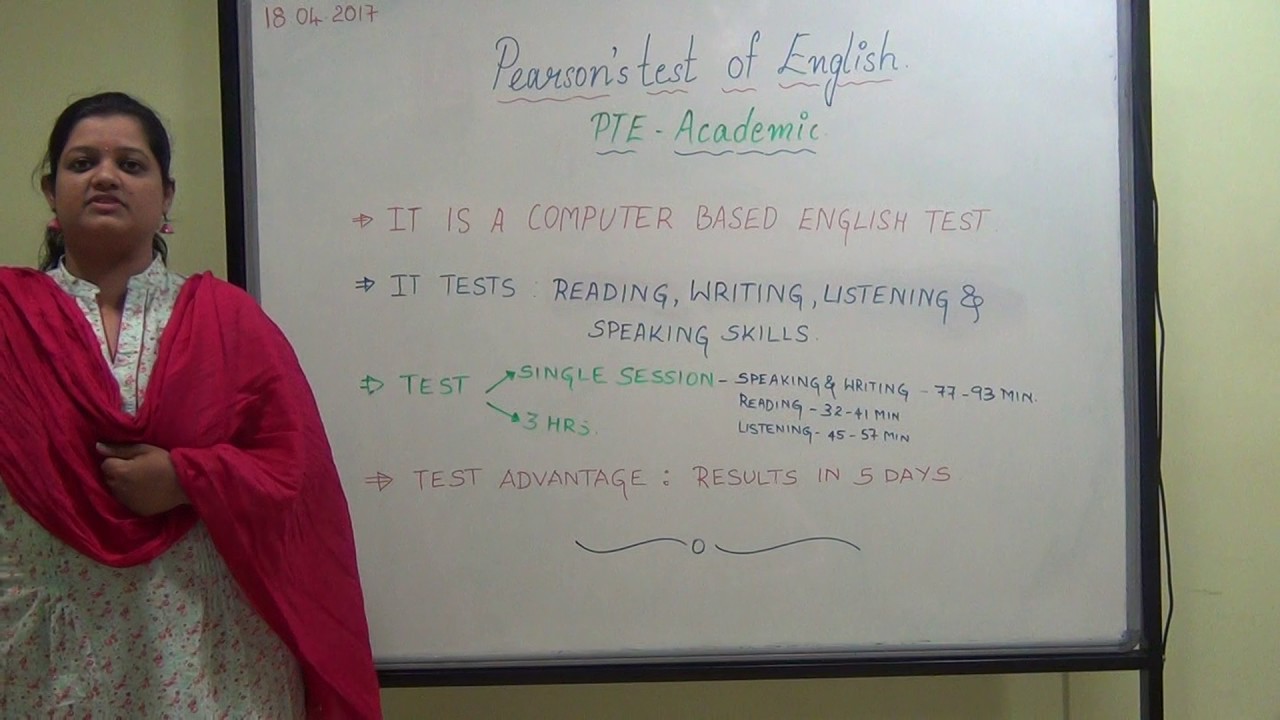 18 04 2017
Pearson's test of English.
PTE - Academic
⇒ IT IS A COMPUTER BASED ENGLISH TEST
⇒ IT TESTS : READING, WRITING, LISTENING &
SPEAKING SKILLS.
⇒ TEST → SINGLE SESSION - SPEAKING & WRITING - 77-93 MIN.
READING - 32-41 MIN
→ 3 HRS. LISTENING - 45-57 MIN
⇒ TEST ADVANTAGE : RESULTS IN 5 DAYS